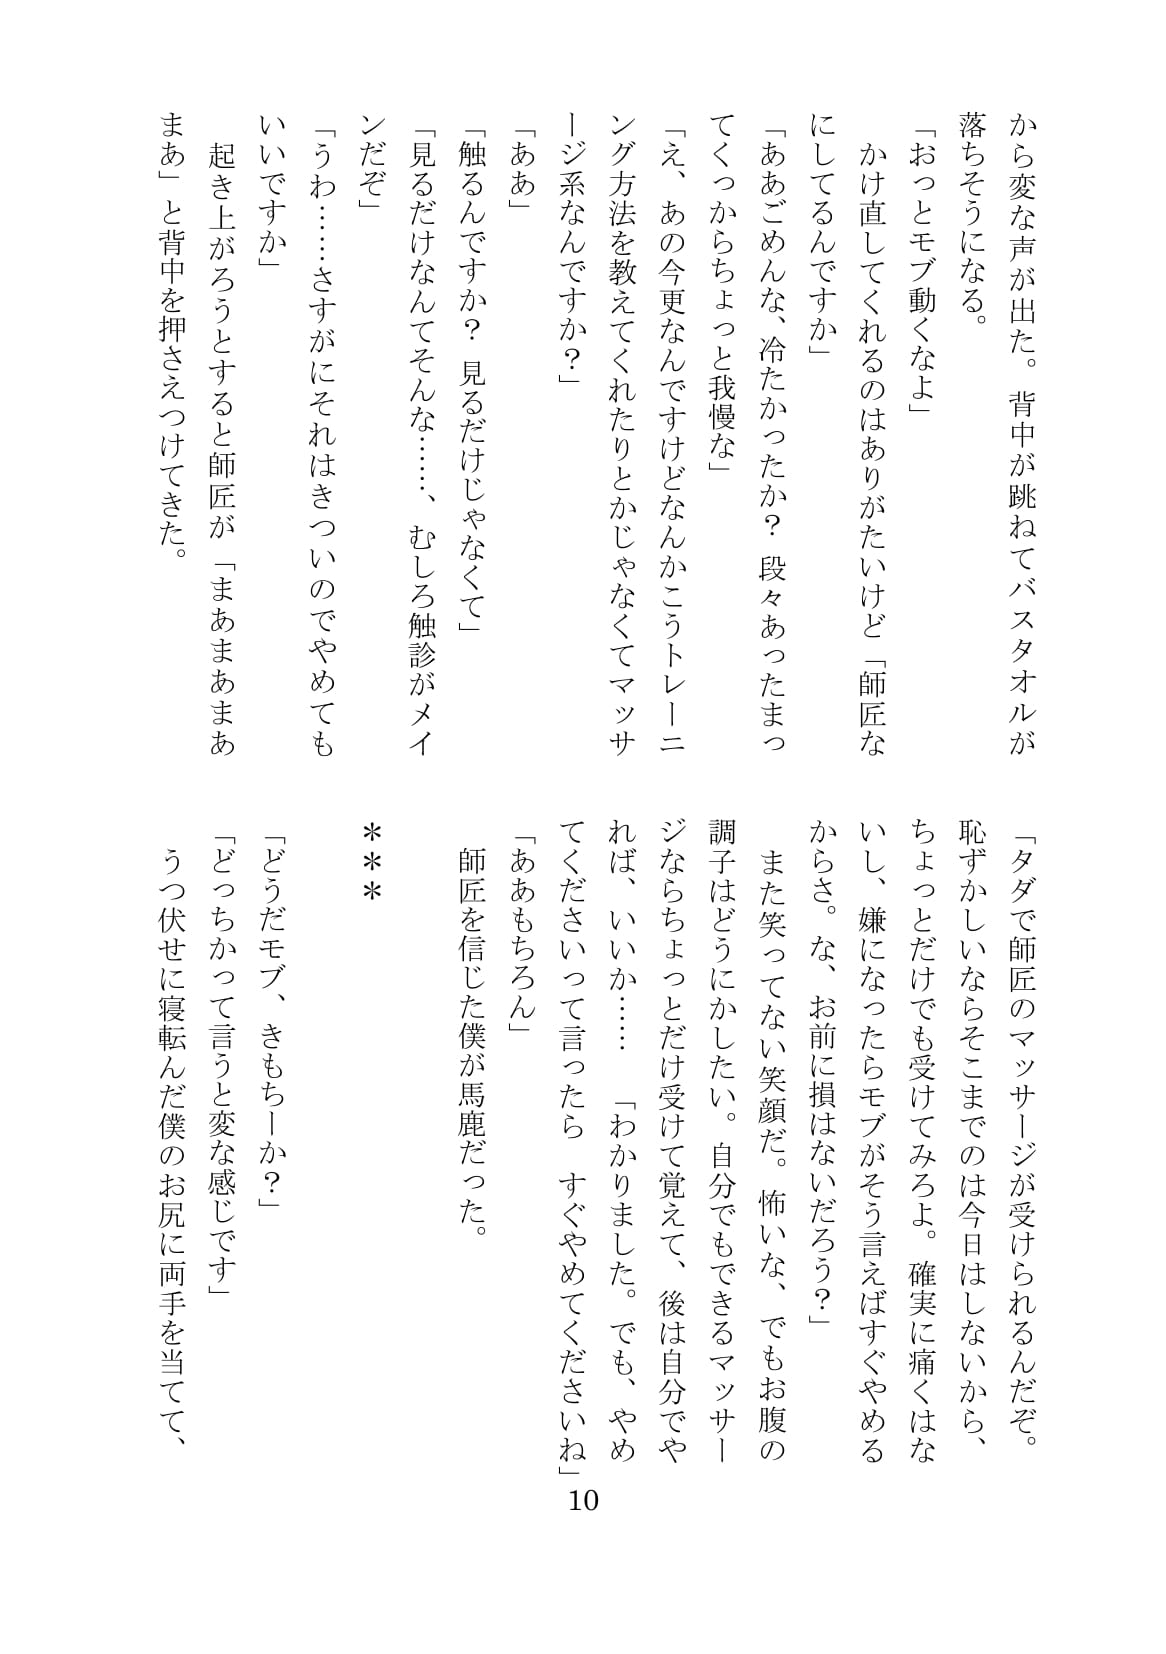 から変な声が出た。背中が跳ねてバスタオルが
落ちそうになる。
「おっとモブ動くなよ」
かけ直してくれるのはありがたいけど「師匠な
にしてるんですか」
「ああごめんな、冷たかったか？ 段々あったまっ
てくっからちょっと我慢な」
「え、あの今更なんですけどなんかこうトレーニ
ング方法を教えてくれたりとかじゃなくてマッサ
ージ系なんですか？」
「ああ」
「触るんですか？ 見るだけじゃなくて」
「見るだけなんてそんな……、むしろ触診がメイ
ンだぞ」
「うわ……さすがにそれはきついのでやめても
いいですか」
起き上がろうとすると師匠が「まあまあまあ
まあ」と背中を押さえつけてきた。
「タダで師匠のマッサージが受けられるんだぞ。
恥ずかしいならそこまでのは今日はしないから、
ちょっとだけでも受けてみろよ。確実に痛くはな
いし、嫌になったらモブがそう言えばすぐやめる
からさ。な、お前に損はないだろう？」
また笑ってない笑顔だ。怖いな、でもお腹の
調子はどうにかしたい。自分でもできるマッサー
ジならちょっとだけ受けて覚えて、後は自分でや
れば、いいか…… 「わかりました。でも、やめ
てくださいって言ったら すぐやめてくださいね」
「ああもちろん」
師匠を信じた僕が馬鹿だった。
＊＊＊
「どうだモブ、きもちーか？」
「どっちかって言うと変な感じです」
うつ伏せに寝転んだ僕のお尻に両手を当てて、
10